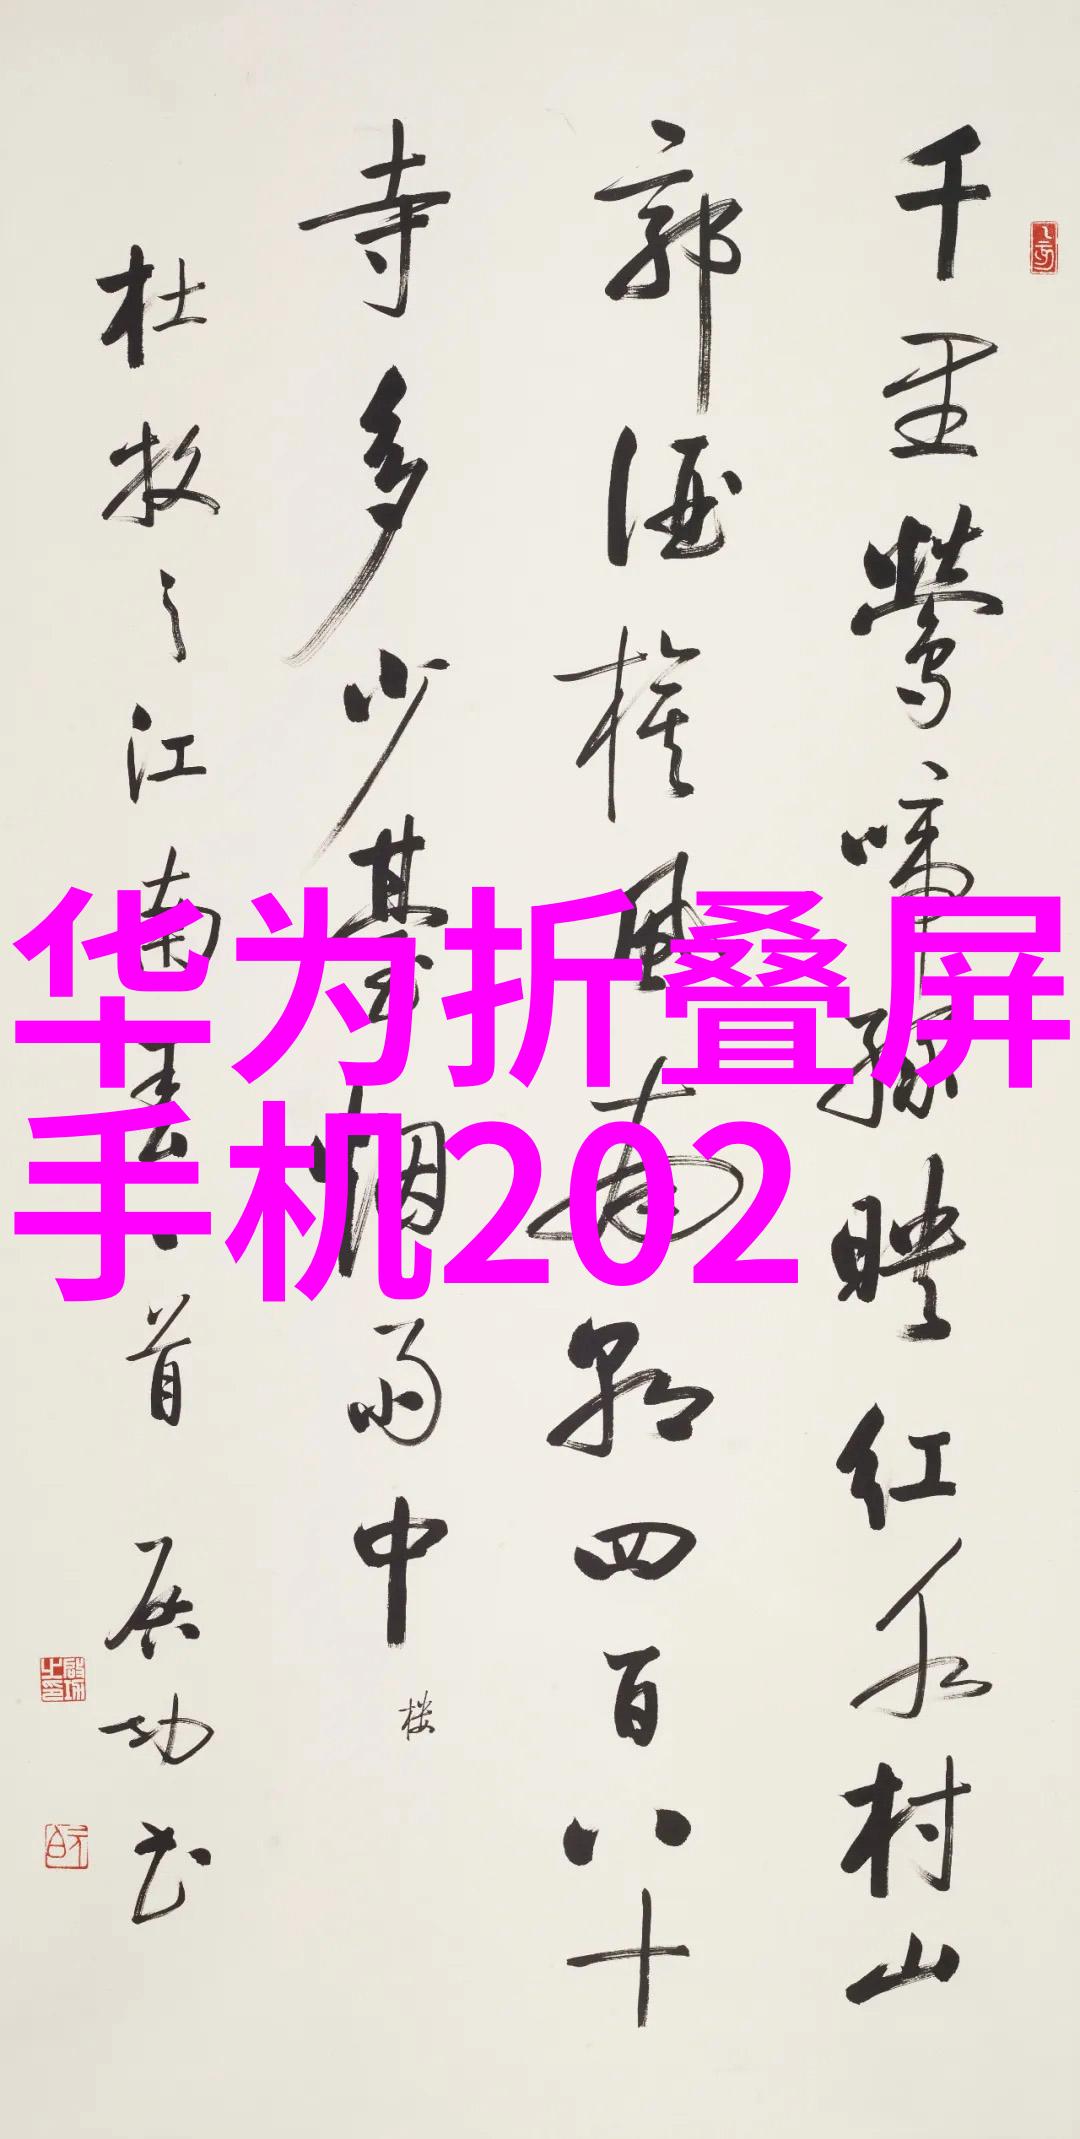 千里鶯啼緑映红水村山
郭酒旗風南朝四百八十
寺多少臺烟雨中
楼
杜牧之江南春一首 启功书
启功之印
元白
华为折叠屏
手机202